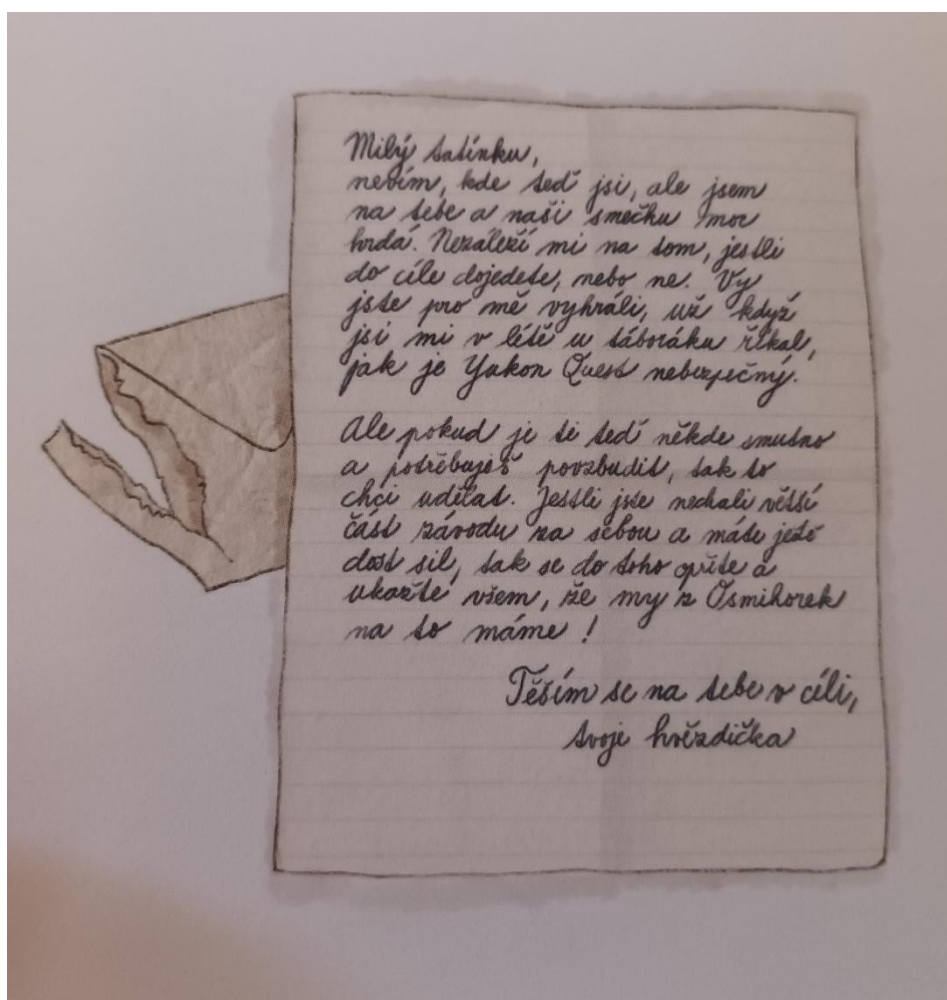 Milý tatínku,
nevím, kde teď jsi, ale jsem
na tebe a naši smečku moc
hrdá. Nezáleží mi na tom, jestli
do cíle dojedete, nebo ne. Vy
jste pro mě vyhráli, už když
jsi mi v létě u táboráku říkal,
jak je Yukon Quest nebezpečný.
Ale pokud je ti teď někde smutno
a potřebuješ povzbudit, tak to
chci udělat. Jestli jste nechali větší
část závodu za sebou a máte ještě
dost sil, tak se do toho opřete a
ukažte všem, že my z Osmihorek
na to máme!
Těším se na tebe v cíli,
tvoje hvězdička